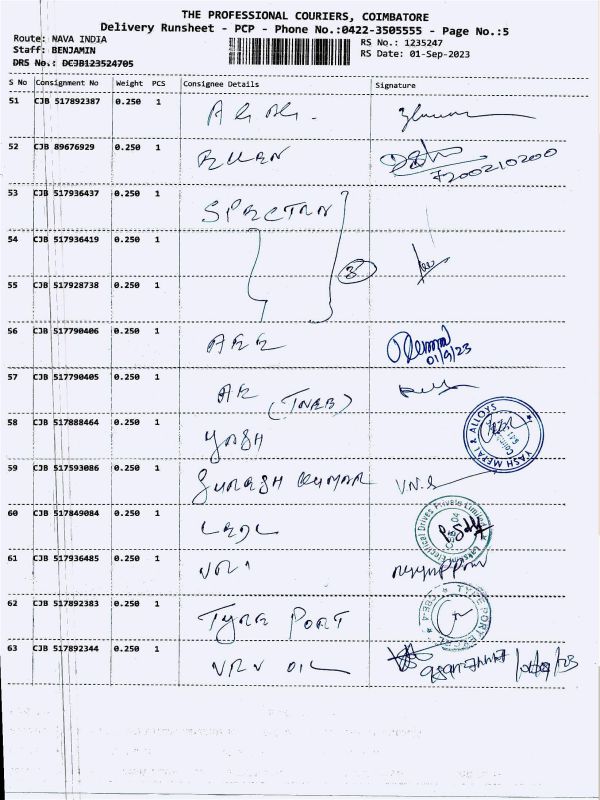 THE PROFESSIONAL COURIERS, COIMBATORE
Delivery Runsheet - PCP - Phone No.:0422-3505555 - Page No.:5
Route: NAVA INDIA
RS No.: 1235247
Staff: BENJAMIN
RS Date: 01-Sep-2023
DRS No.: DCJB123524705
S No Consignment No Weight PCS Consignee Details Signature
51 CJB 517892387 0.250 1
52 CJB 89676929 0.250 1
7200210200
53 CJB 517936437 0.250 1 SPECTRN
54 CJB 517936419 0.250 1
3
55 CJB 517928738 0.250 1
56 CJB 517790406 0.250 1
01/9/23
57 CJB 517790405 0.250 1 AE (TNEB)
58 CJB 517888464 0.250 1 YASH
YASH METAL & ALLOYS
59 CJB 517593086 0.250 1 SURESH KUMAR V.N.S
60 CJB 517849084 0.250 1
Electrical Drives Private Limited
61 CJB 517936485 0.250 1
62 CJB 517892383 0.250 1 TYRE PORT
TYRE PORT
63 CJB 517892344 0.250 1 VRV OIL